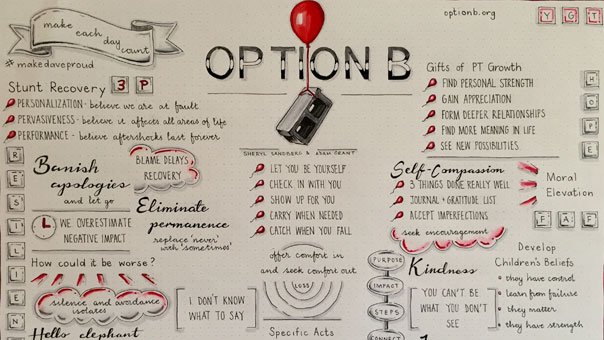 make
each
day
count
#makedaveproud
OPTION B
optionb.org
Y G T
Stunt Recovery 3 P
PERSONALIZATION - believe we are at fault
PERVASIVENESS - believe it affects all areas of life
PERFORMANCE - believe aftershocks last forever
SHERYL SANDBERG & ADAM GRANT
Gifts of PT Growth
FIND PERSONAL STRENGTH
GAIN APPRECIATION
FORM DEEPER RELATIONSHIPS
FIND MORE MEANING IN LIFE
SEE NEW POSSIBILITIES
H
O
P
E
R
E
S
I
L
I
E
N
Banish
apologies
and let go
BLAME DELAYS
RECOVERY
Eliminate
permanence
replace 'never'
with 'sometimes'
WE OVERESTIMATE
NEGATIVE IMPACT
How could it be worse?
silence and avoidance
isolates
Hello elephant
LET YOU BE YOURSELF
CHECK IN WITH YOU
SHOW UP FOR YOU
CARRY WHEN NEEDED
CATCH WHEN YOU FALL
offer comfort in
and seek comfort out
LOSS
I DON'T KNOW
WHAT TO SAY
Specific Acts
Self-Compassion
3 THINGS DONE REALLY WELL
JOURNAL + GRATITUDE LIST
ACCEPT IMPERFECTIONS
seek encouragement
Moral
Elevation
F A F
PURPOSE
IMPACT
STEPS
CONNECT
Kindness
YOU CAN'T BE
WHAT YOU DON'T
SEE
Develop
Children's Beliefs
they have control
learn from failure
they matter
they have strength